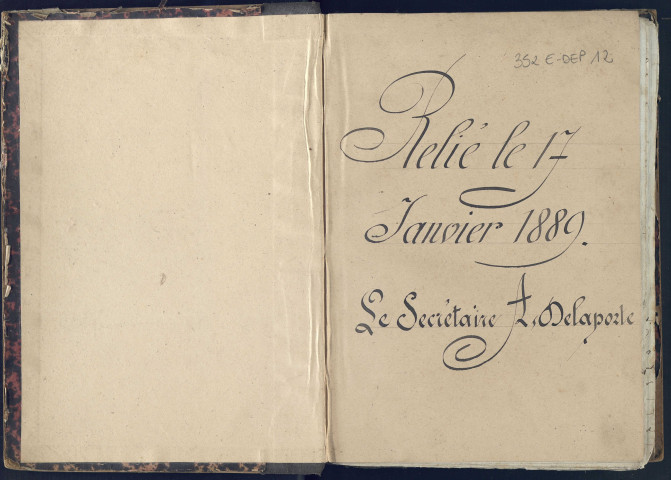 352 E-DEP 12
Relié le 17
Janvier 1889.
Le Secrétaire A. Delaporte